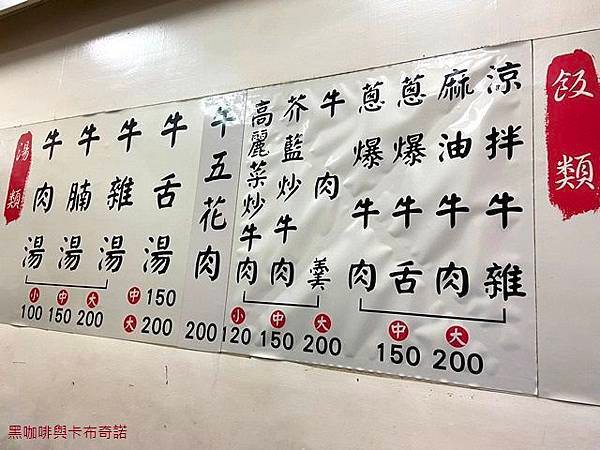 飯類
涼拌牛雜
麻油牛肉
蔥爆牛舌
蔥爆牛肉
中 150
大 200
牛肉羹
芥藍炒牛肉
高麗菜炒牛肉
小 120
中 150
大 200
牛五花肉
200
牛舌湯
中 150
大 200
牛雜湯
牛腩湯
牛肉湯
小 100
中 150
大 200
湯類
黑咖啡與卡布奇諾